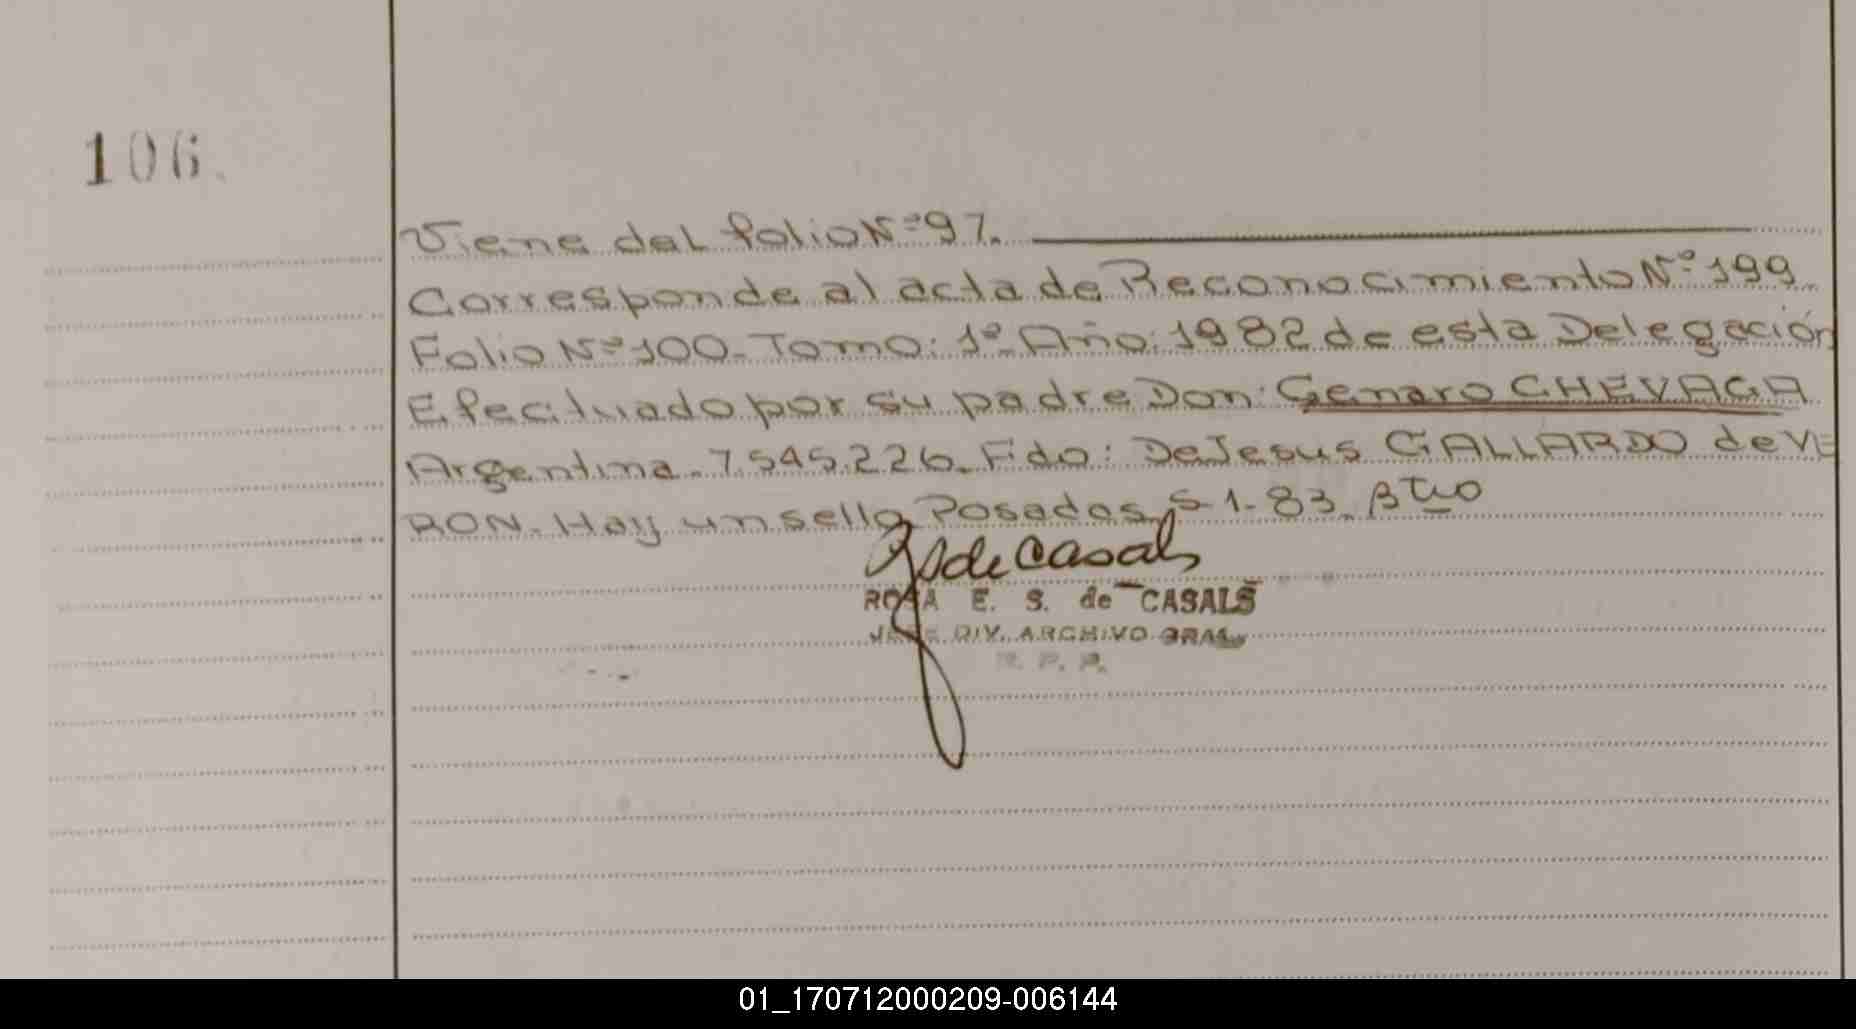 106.
Viene del folio Nº 97.
Corresponde al acta de Reconocimiento Nº 199.
Folio Nº 100. Tomo: 1º. Año: 1982 de esta Delegación
Efectuado por su padre Don: Genaro CHEVAGA
Argentina. 7.545.226. Fdo: DeJesus GALLARDO de VE
RON. Hay un sello Posadas, 5-1-83.
de Casals
ROSA E. S. de CASALS
JEFE DIV. ARCHIVO GRAL.
R. P. P.
01_170712000209-006144